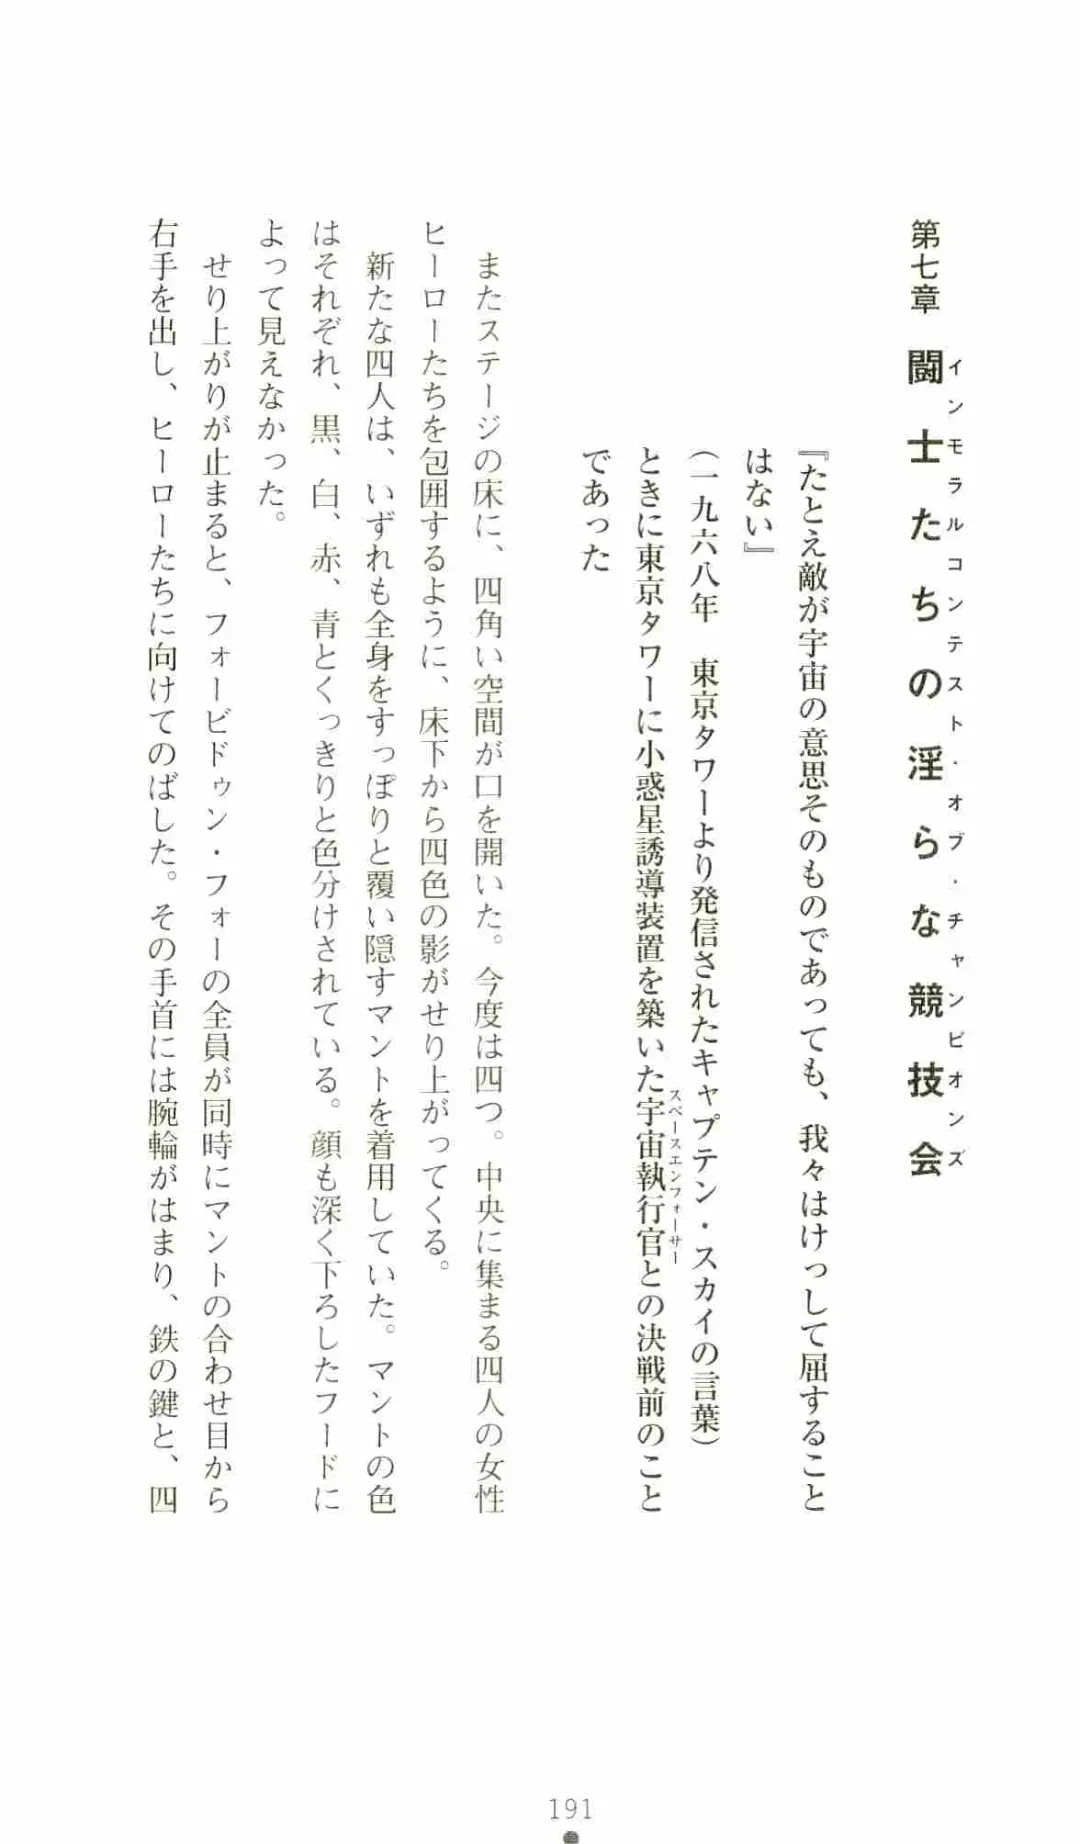 第七章 闘士たちの淫らな競技会
インモラルコンテスト・オブ・チャンピオンズ
『たとえ敵が宇宙の意思そのものであっても、我々はけっして屈すること
はない』
（一九六八年　東京タワーより発信されたキャプテン・スカイの言葉）
ときに東京タワーに小惑星誘導装置を築いた宇宙執行官との決戦前のこと
スペースエンフォーサー
であった
またステージの床に、四角い空間が口を開いた。今度は四つ。中央に集まる四人の女性
ヒーローたちを包囲するように、床下から四色の影がせり上がってくる。
新たな四人は、いずれも全身をすっぽりと覆い隠すマントを着用していた。マントの色
はそれぞれ、黒、白、赤、青とくっきりと色分けされている。顔も深く下ろしたフードに
よって見えなかった。
せり上がりが止まると、フォービドゥン・フォーの全員が同時にマントの合わせ目から
右手を出し、ヒーローたちに向けてのばした。その手首には腕輪がはまり、鉄の鍵と、四
191